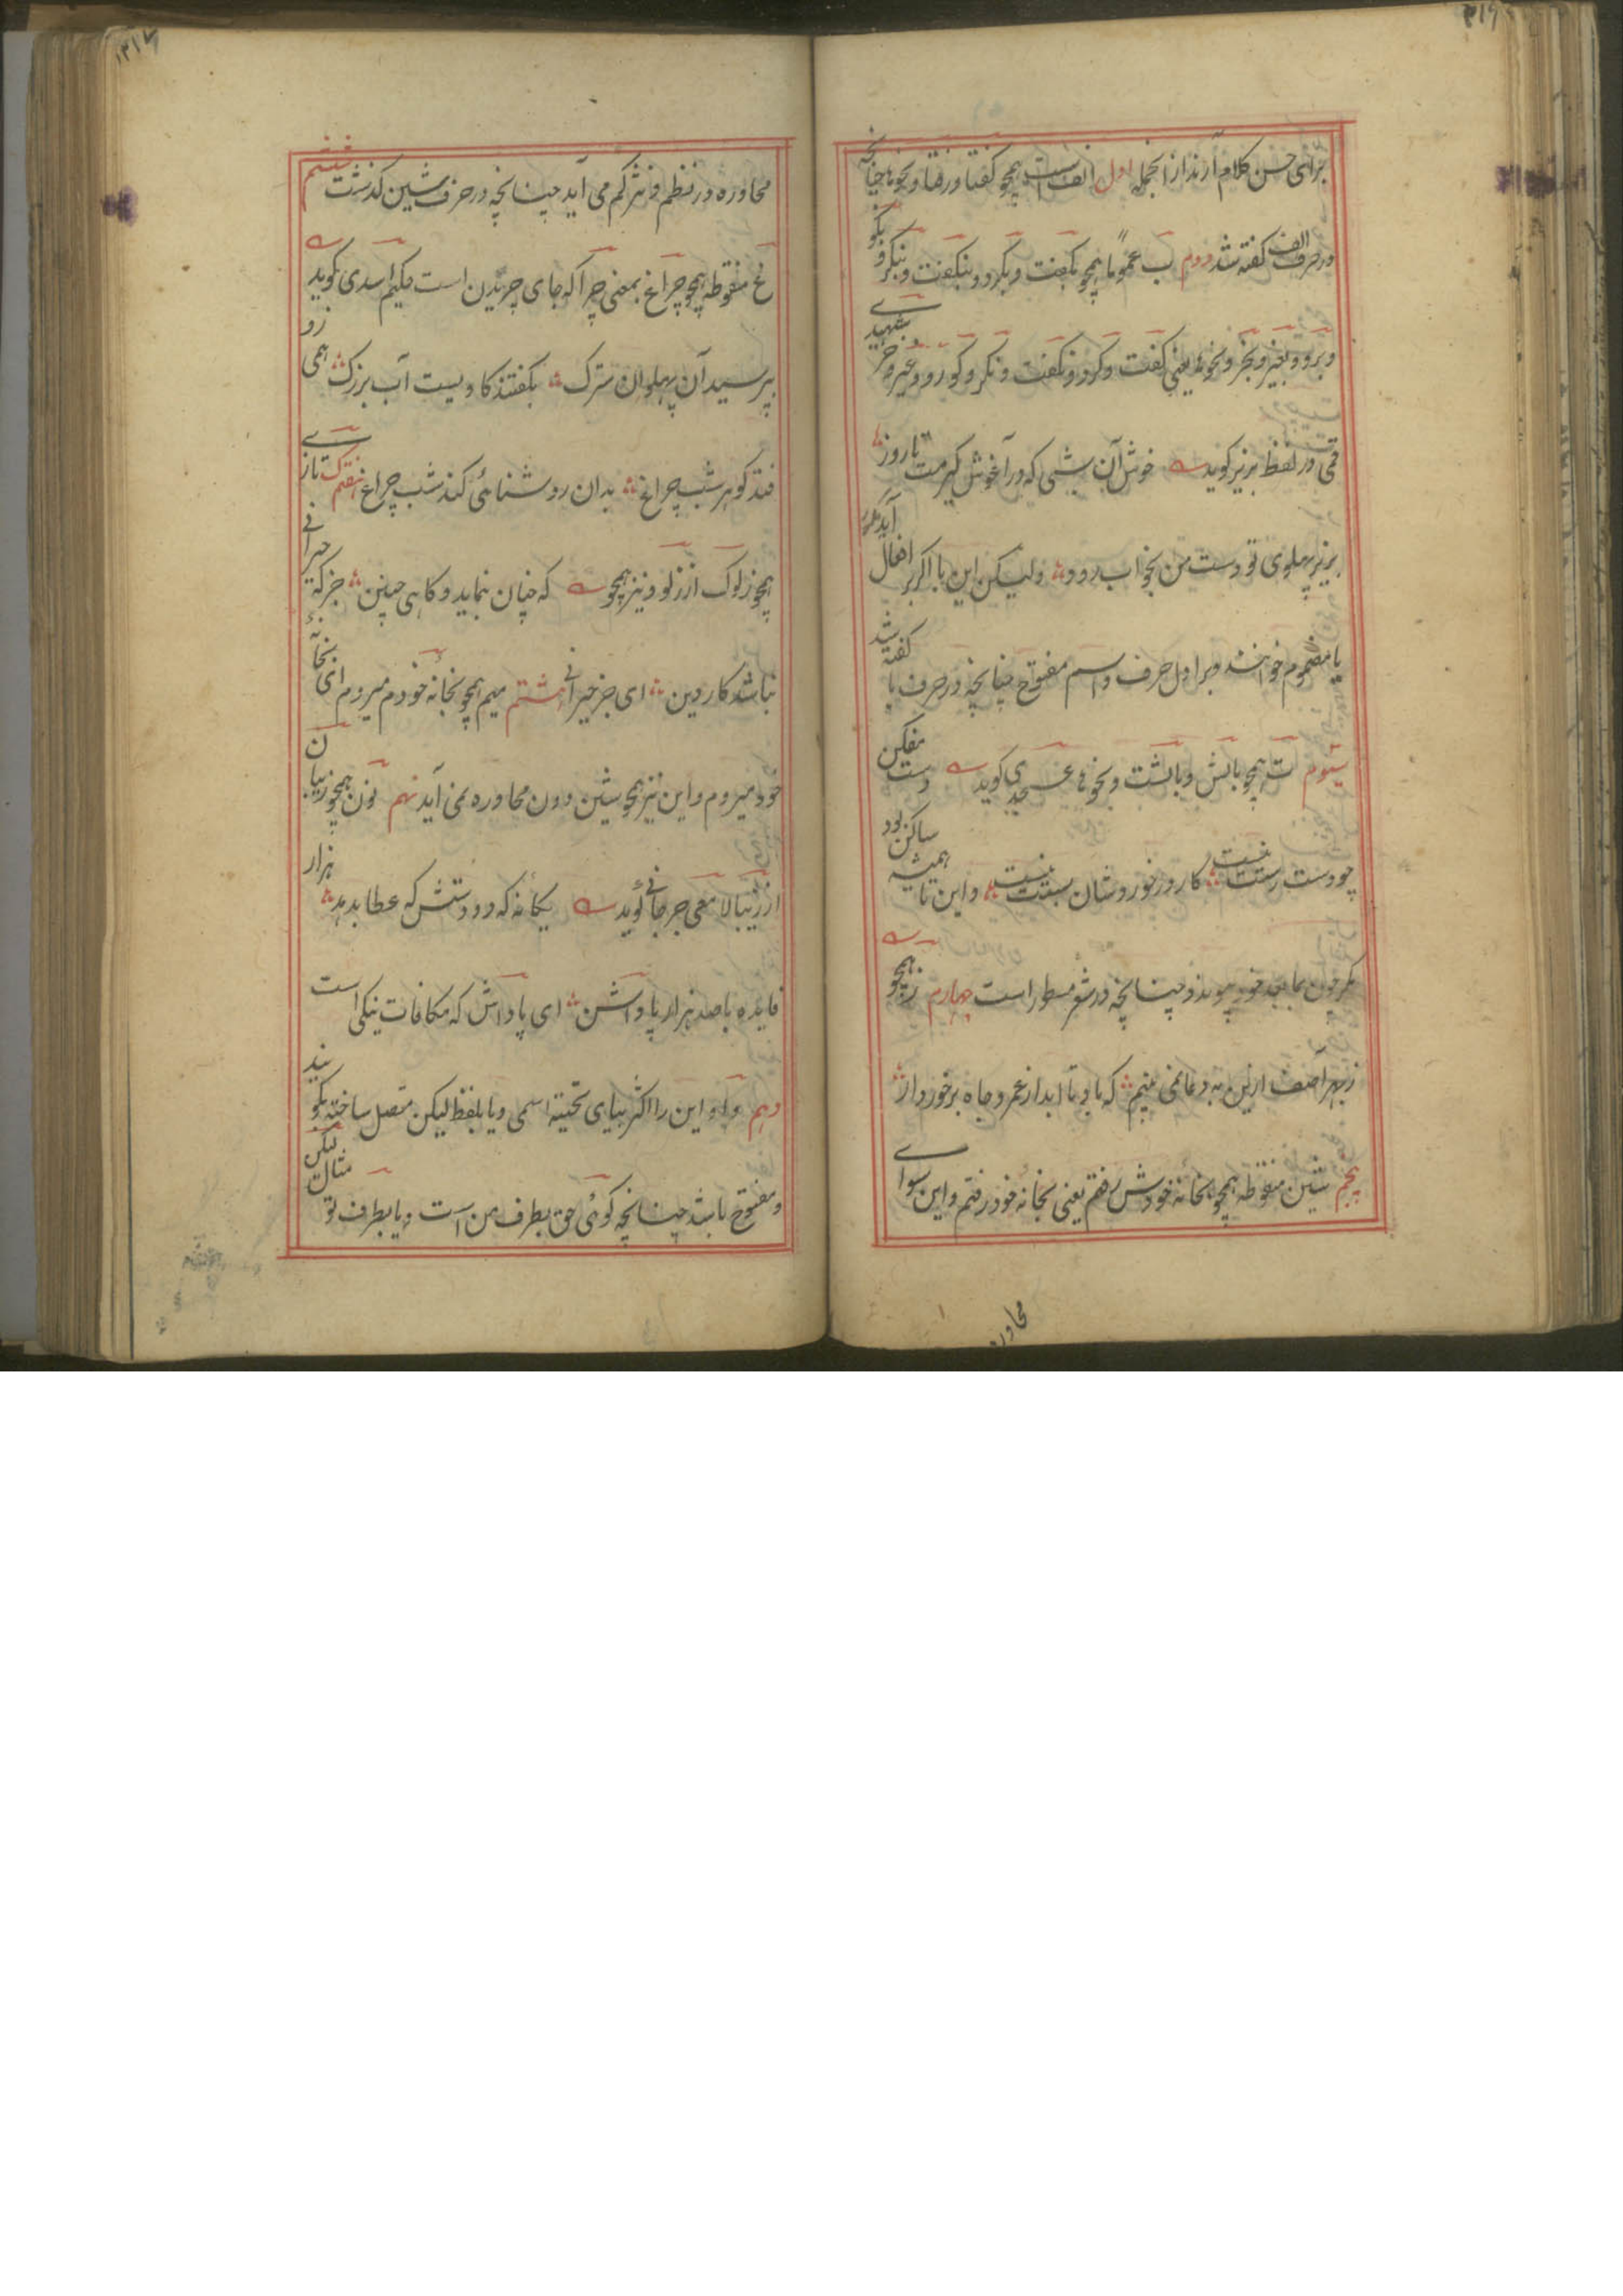 برای حسن کلام آرند از انجمله اول الف است همچو گفتا و رفتا و نحوها چنانچه
در حرف الف گفته شد دوم ب عموما همچو بگفت و بکرد و بنگفت و بنکرد
و برود و نحوها یعنی گفت و کرد و نگفت و نکرد
قمی در لفظ بزیر گوید خوش آن شبی که در آغوش گیرمت تا روز
بزیر پهلوی تو دست من بخواب رود ولیکن این با اگر بر افعال آید
یا مضموم خوانند و بر اول حرف و اسم مفتوح چنانچه در حرف با گفته شد
سیوم ت همچو بالش و بالشت و نحوها عسجدی گوید دست
چو دست رست نیست کار و زفر و شان بست نیست و این تا همیشه ساکن بود
مگر چون بما بعد خود پیوندد چنانچه در شعر مسطور است چهارم ز همچو
آصف ازین به دعا نمی بینم که باد تا ابد از عمر و جاه برخوردار
پنجم شین منقوطه همچو بخانه خودش رفتم یعنی بخانه خود رفتم و این سوای
محاوره
محاوره در نظم و نثر کم می آید چنانچه در حرف شین گذشت ششم
غ منقوطه همچو چراغ بمعنی چرا که جای چریدن است حکیم اسدی گوید
بپرسید آن پهلوان سترک بگفتند کاویست آب بزرگ همی زو
فتد گوهر شب چراغ بدان روشنائی کند شب چراغ هفتم ک تازی
همچو زلوک از زلو و نیز همچو که چنان نماید و گاهی چنین جز که حیرانی
نباشد کار دین ای جز حیرانی هشتم میم همچو بخانه خودم میروم ای بخانه
خود میروم و این نیز همچو شین دون محاوره نمی آید نهم نون همچو زیبان
از زیبا لامعی جرجانی گوید یگانه که دو دستش که عطا بدهد هزار
فایده با صد هزار پاداشن ای پاداش که مکافات نیکی است
دهم واو این را اکثر بیای تحتیه اسمی و یا بلفظ لیکن متصل ساخته گویند
و مفتوح باشد چنانچه گوئی حق بطرف من است و یا بطرف تو مثال